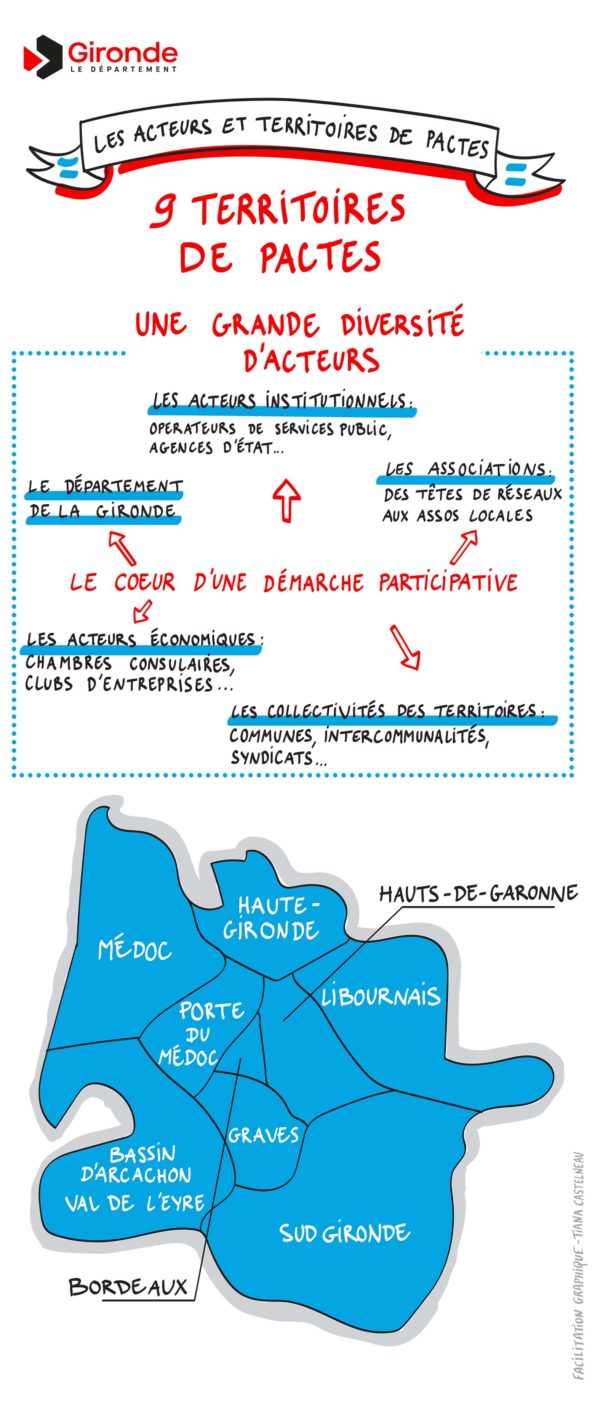 Gironde
LE DÉPARTEMENT
LES ACTEURS ET TERRITOIRES DE PACTES
9 TERRITOIRES
DE PACTES
UNE GRANDE DIVERSITÉ
D'ACTEURS
LES ACTEURS INSTITUTIONNELS:
OPERATEURS DE SERVICES PUBLIC,
AGENCES D'ÉTAT...
LE DÉPARTEMENT
DE LA GIRONDE
LES ASSOCIATIONS:
DES TÊTES DE RÉSEAUX
AUX ASSOS LOCALES
LE COEUR D'UNE DÉMARCHE PARTICIPATIVE
LES ACTEURS ÉCONOMIQUES:
CHAMBRES CONSULAIRES,
CLUBS D'ENTREPRISES...
LES COLLECTIVITÉS DES TERRITOIRES:
COMMUNES, INTERCOMMUNALITÉS,
SYNDICATS...
HAUTS-DE-GARONNE
HAUTE-
GIRONDE
MÉDOC
LIBOURNAIS
PORTE
DU
MÉDOC
GRAVES
BASSIN
D'ARCACHON
VAL DE L'EYRE
SUD GIRONDE
BORDEAUX
FACILITATION GRAPHIQUE - TIANA CASTELNEAU